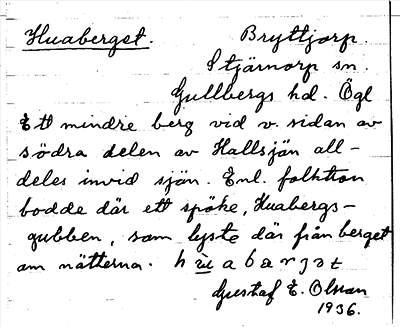 Huaberget. Bryttjorp.
Stjärnorp sn.
Gullbergs hd. Ögl
Ett mindre berg vid v. sidan av
södra delen av Hallsjön all-
deles invid sjön. Enl. folktron
bodde där ett spöke, Huabergs-
gubben, som lyste där från berget
om nätterna.
Gustaf E. Olsson
1936.